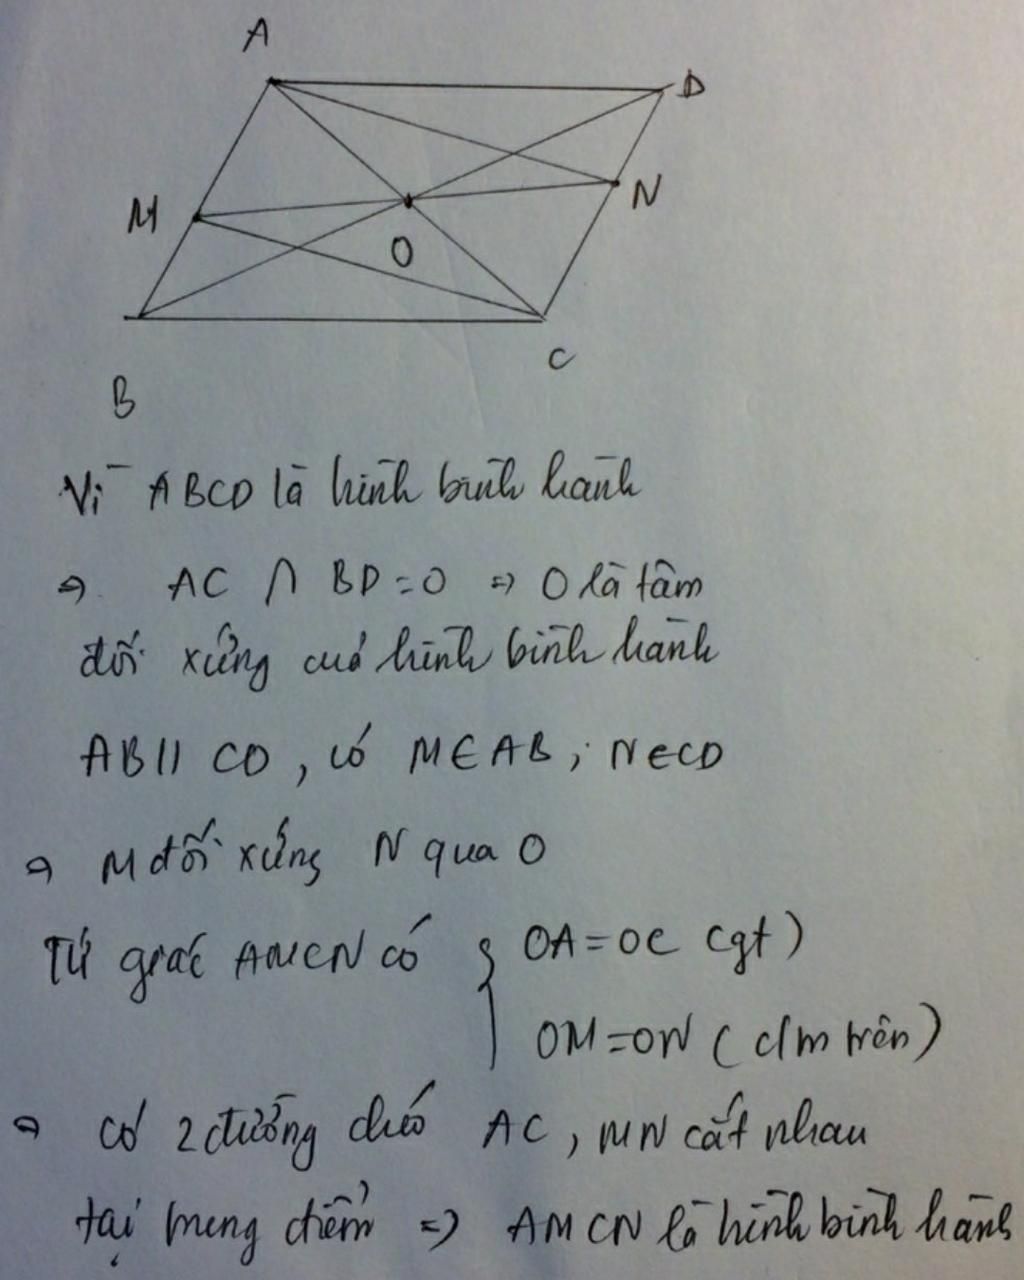 A
D
M
N
O
C
B
Vì ABCD là hình bình hành
⇒ AC ∩ BD = O ⇒ O là tâm
đối xứng của hình bình hành
AB // CD, có M ∈ AB; N ∈ CD
⇒ M đối xứng N qua O
Tứ giác AMCN có { OA = OC (gt)
OM = ON (c/m trên)
⇒ có 2 đường chéo AC, MN cắt nhau
tại trung điểm ⇒ AMCN là hình bình hành